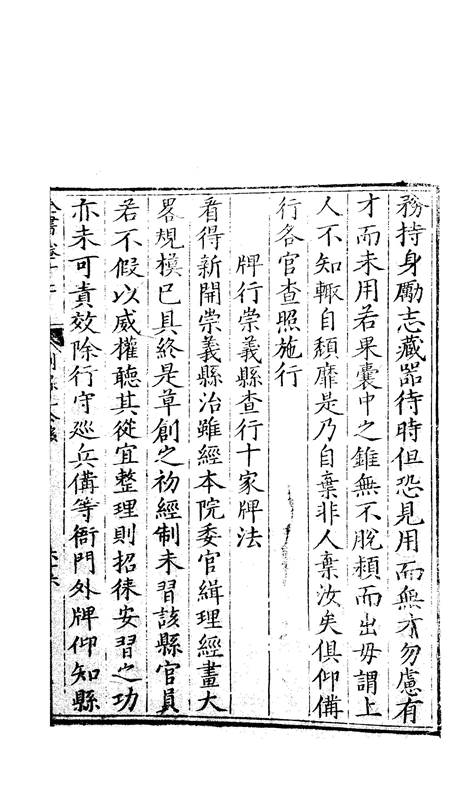 務持身勵志藏器待時但恐見用而無才勿慮有
才而未用若果囊中之錐無不脫穎而出毋謂上
人不知輒自頹靡是乃自棄非人棄汝矣俱仰備
行各官查照施行
牌行崇義縣查行十家牌法
看得新開崇義縣治雖經本院委官緝理經畫大
畧規模已具終是草創之初經制未習該縣官員
若不假以威權聽其從宜整理則招徠安習之功
亦未可責效除行守巡兵備等衙門外牌仰知縣